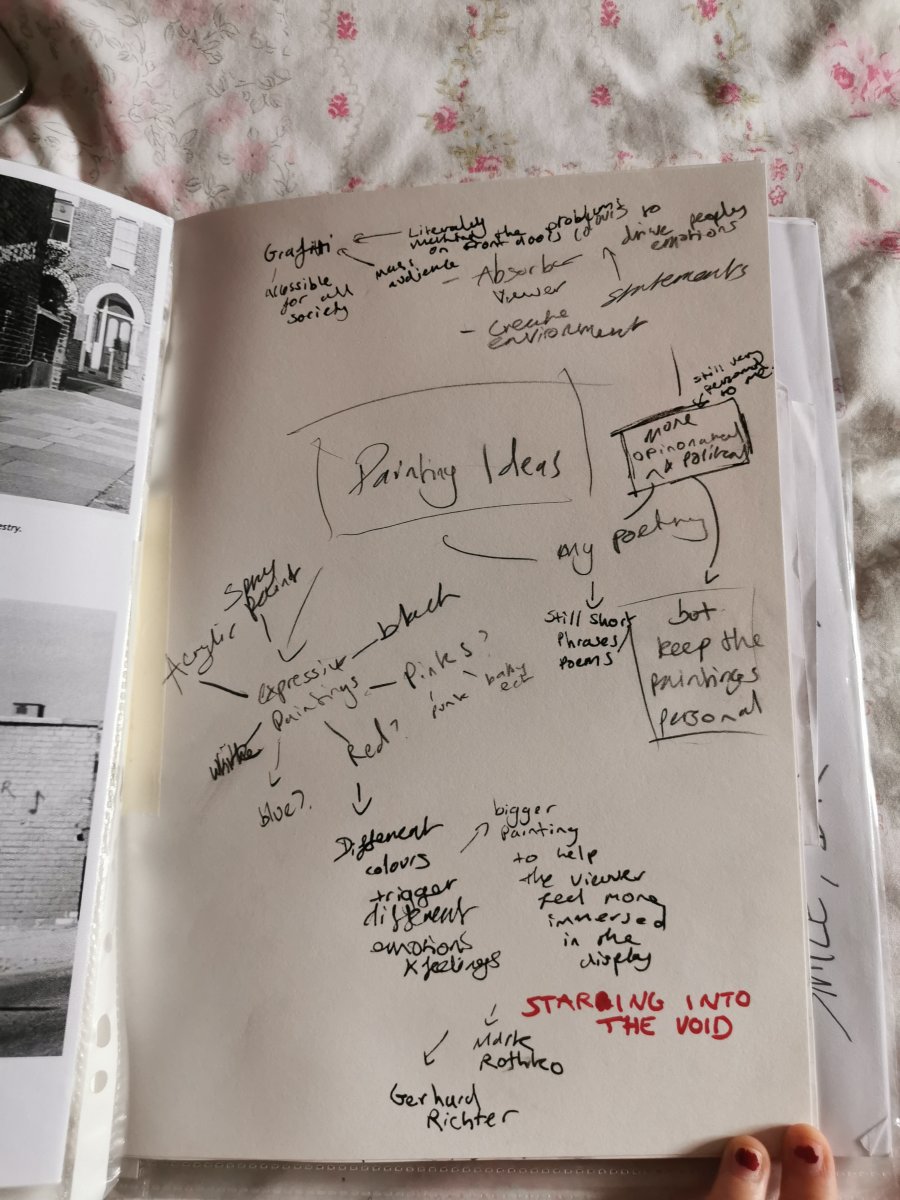 Graffiti
acessible
for all
society
mass
audience
Literaley
the problems
on front doors
to
drive peoples
emotions
- Absorbe
viewer
statements
- create
environment
still very
personal
to me.
Painting Ideas
More
opinonated
political
my poetry
Still short
Phrases/
Poems
but
keep the
paintings
personal
Spray
paint
Acrylic
expressive
Paintings
black
Pinks?
punk
baby
ect
white
Red?
blue?
Different
colours
trigger
different
emotions
& feelings
bigger
painting
to help
the viewer
feel more
immersed
in the
display
STARING INTO
THE VOID
Mark
Rothko
Gerhard
Richter
estry.
R